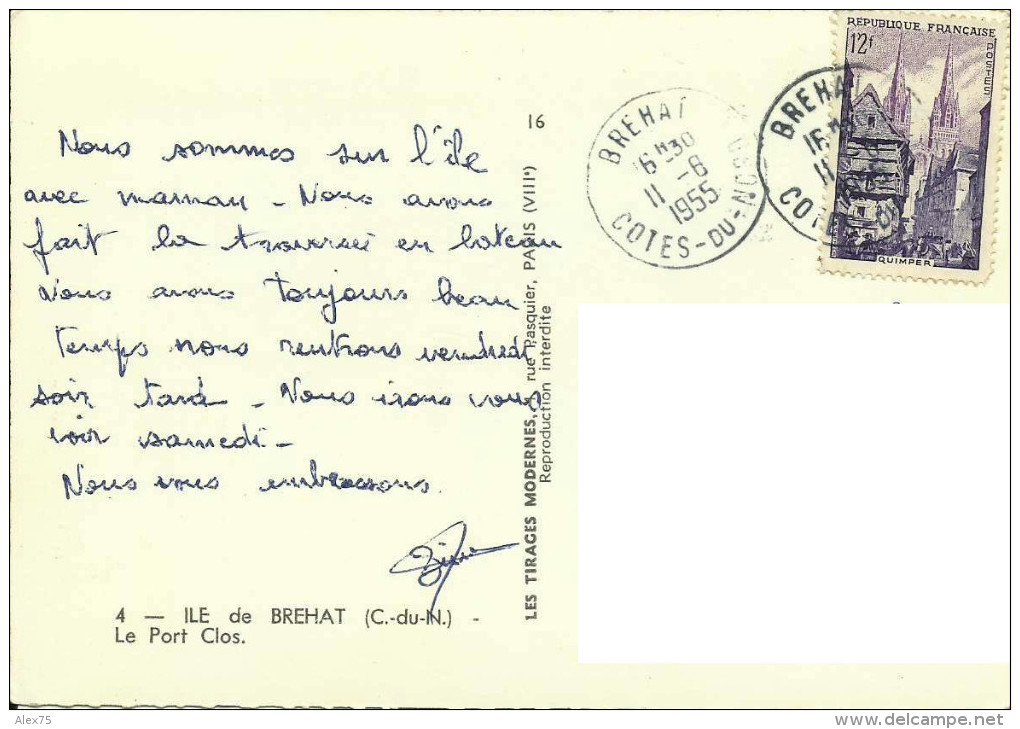 REPUBLIQUE FRANÇAISE
12f
POSTES
QUIMPER
BREHAT
16H30
11 -8
1955
COTES-DU-NORD
BREHAT
16H30
11
COTES-DU
16
Nous sommes sur l'île
avec maman - Nous avons
fait la traversée en bateau
Nous avons toujours beau
temps nous rentrons vendredi
soir tard - Nous irons vous
voir samedi -
Nous vous embrassons.
LES TIRAGES MODERNES, rue Pasquier, PARIS (VIIIe)
Reproduction interdite
4 — ILE de BREHAT (C.-du-N.) -
Le Port Clos.
Alex75
www.delcampe.net